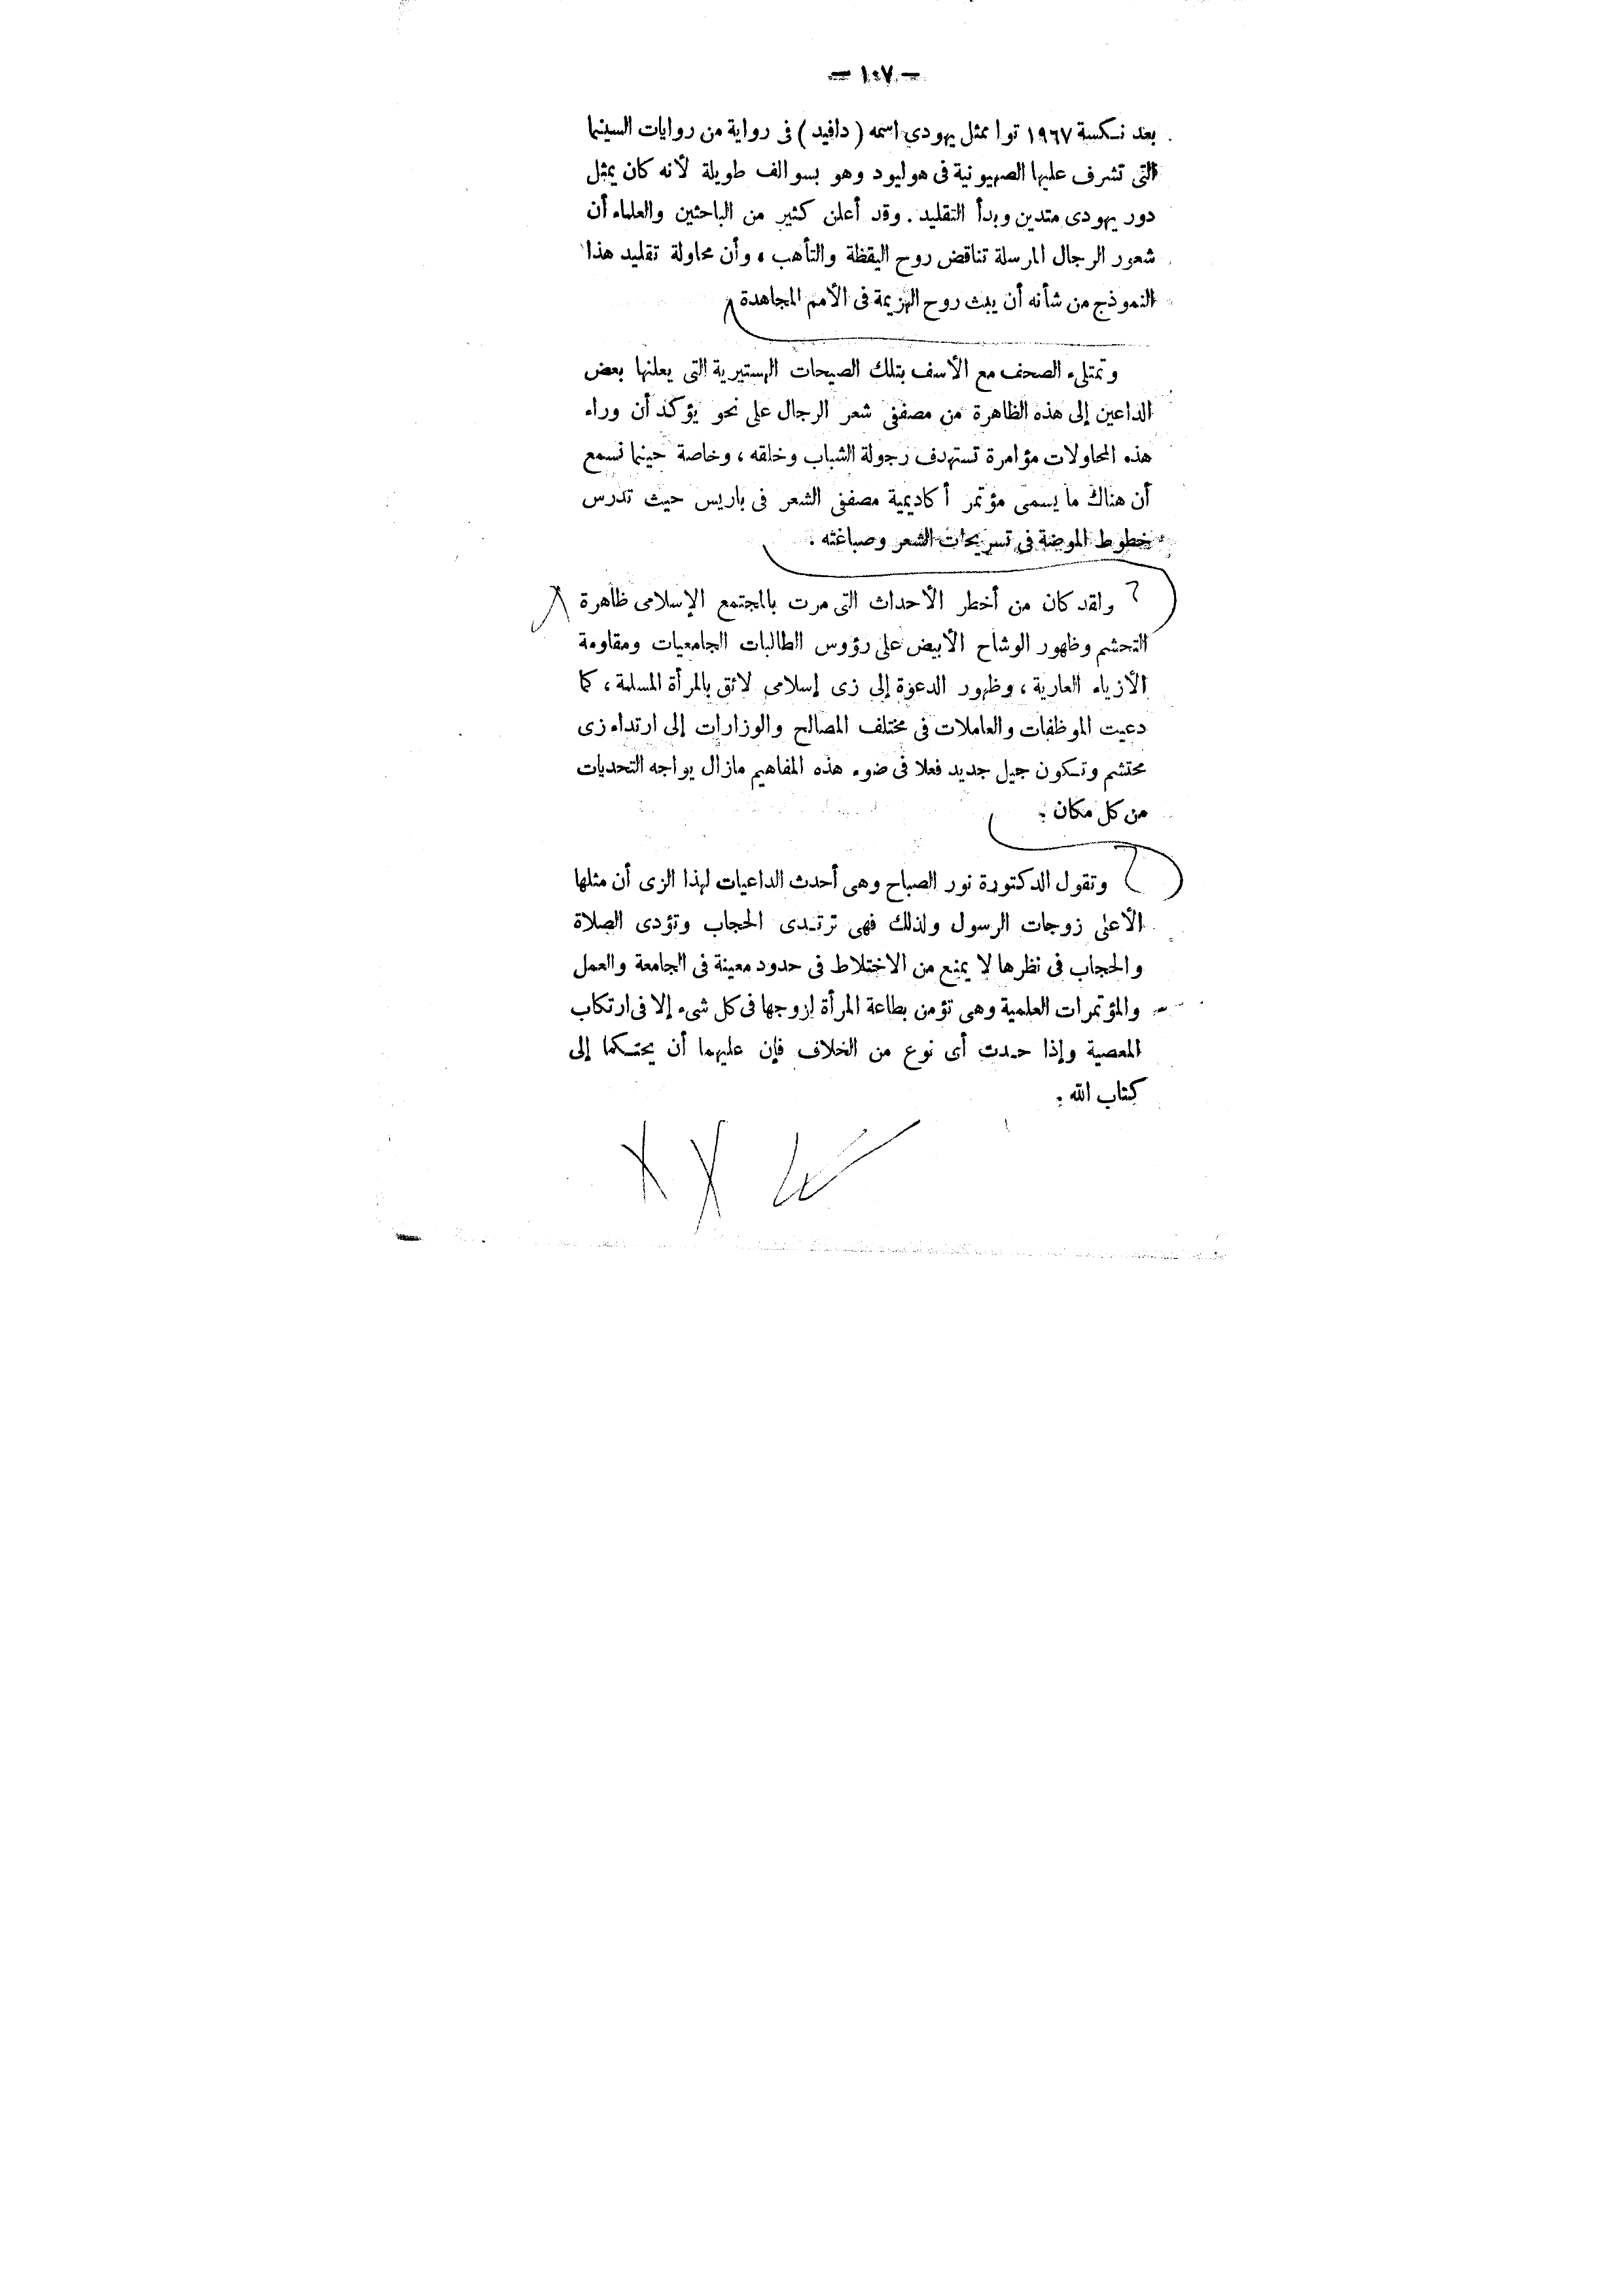 — ١٠٧ —
بعد نكسة ١٩٦٧ توا ممثل يهودى اسمه ( دافيد ) فى رواية من روايات السينما
التى تشرف عليها الصهيونية فى هوليود وهو بسوالف طويلة لأنه كان يمثل
دور يهودى متدين وبدأ التقليد . وقد أعلن كثير من الباحثين والعلماء أن
شعور الرجال المرسلة تناقض روح اليقظة والتأهب ، وأن محاولة تقليد هذا
النموذج من شأنه أن يبث روح الهزيمة فى الأمم المجاهدة
وتمتلىء الصحف مع الأسف بتلك الصيحات الهستيرية التى يعلنها بعض
الداعين إلى هذه الظاهرة من مصففى شعر الرجال على نحو يؤكد أن وراء
هذه المحاولات مؤامرة تستهدف رجولة الشباب وخلقه ، وخاصة حينما نسمع
أن هناك ما يسمى مؤتمر أكاديمية مصففى الشعر فى باريس حيث تدرس
خطوط الموضة فى تسريحات الشعر وصباغته .
ولقد كان من أخطر الأحداث التى مرت بالمجتمع الإسلامى ظاهرة
التحشم وظهور الوشاح الأبيض على رؤوس الطالبات الجامعيات ومقاومة
الأزياء العارية ، وظهور الدعوة إلى زى إسلامى لائق بالمرأة المسلمة ، كما
دعيت الموظفات والعاملات فى مختلف المصالح والوزارات إلى ارتداء زى
محتشم وتكون جيل جديد فعلا فى ضوء هذه المفاهيم مازال يواجه التحديات
من كل مكان .
وتقول الدكتورة نور الصباح وهى أحدث الداعيات لهذا الزى أن مثلها
الأعلى زوجات الرسول ولذلك فهى ترتدى الحجاب وتؤدى الصلاة
والحجاب فى نظرها لا يمنع من الاختلاط فى حدود معينة فى الجامعة والعمل
والمؤتمرات العلمية وهى تؤمن بطاعة المرأة لزوجها فى كل شىء إلا فى ارتكاب
المعصية وإذا حدث أى نوع من الخلاف فإن عليهما أن يحتكما إلى
كتاب الله .